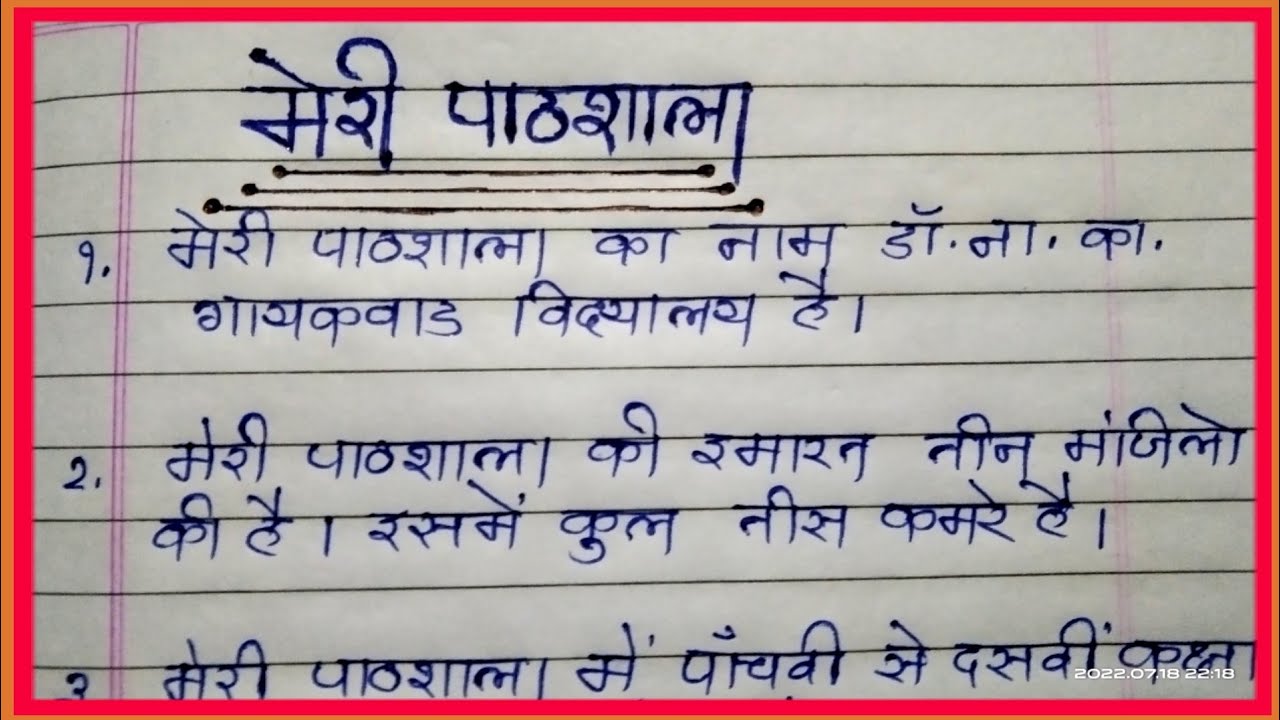 मेरी पाठशाला
१. मेरी पाठशाला का नाम डॉ. ना. का.
गायकवाड विद्यालय है।
२. मेरी पाठशाला की इमारत तीन मंजिलो
की है। इसमें कुल तीस कमरे है।
३ मेरी पाठशाला में पाँचवी से दसवीं कक्षा
2022.07.18 22:18